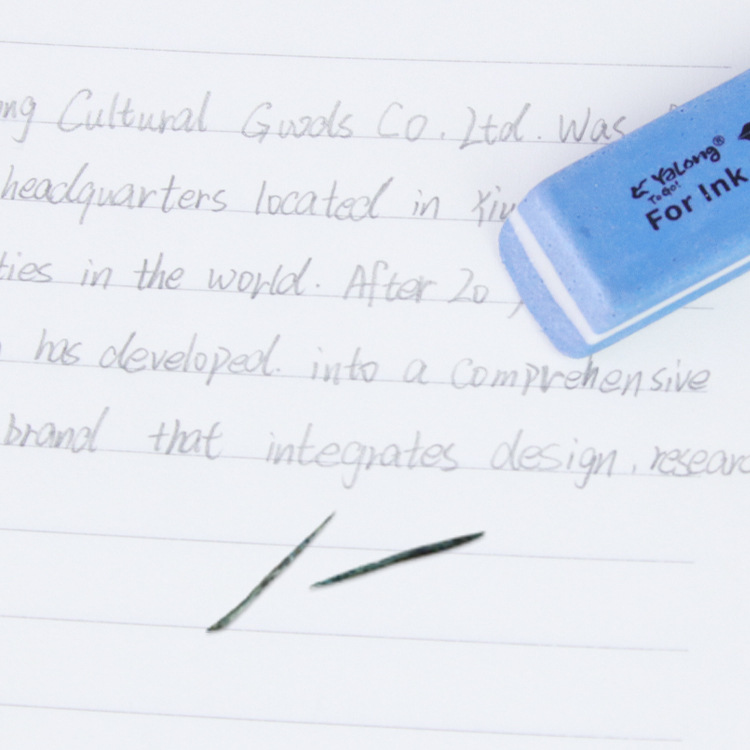 ng Cultural Goods Co. Ltd. Was
headquarters located in
ties in the world. After 20
has developed. into a comprehensive
brand that integrates design, researc
Yalong®
To Go!
For Ink